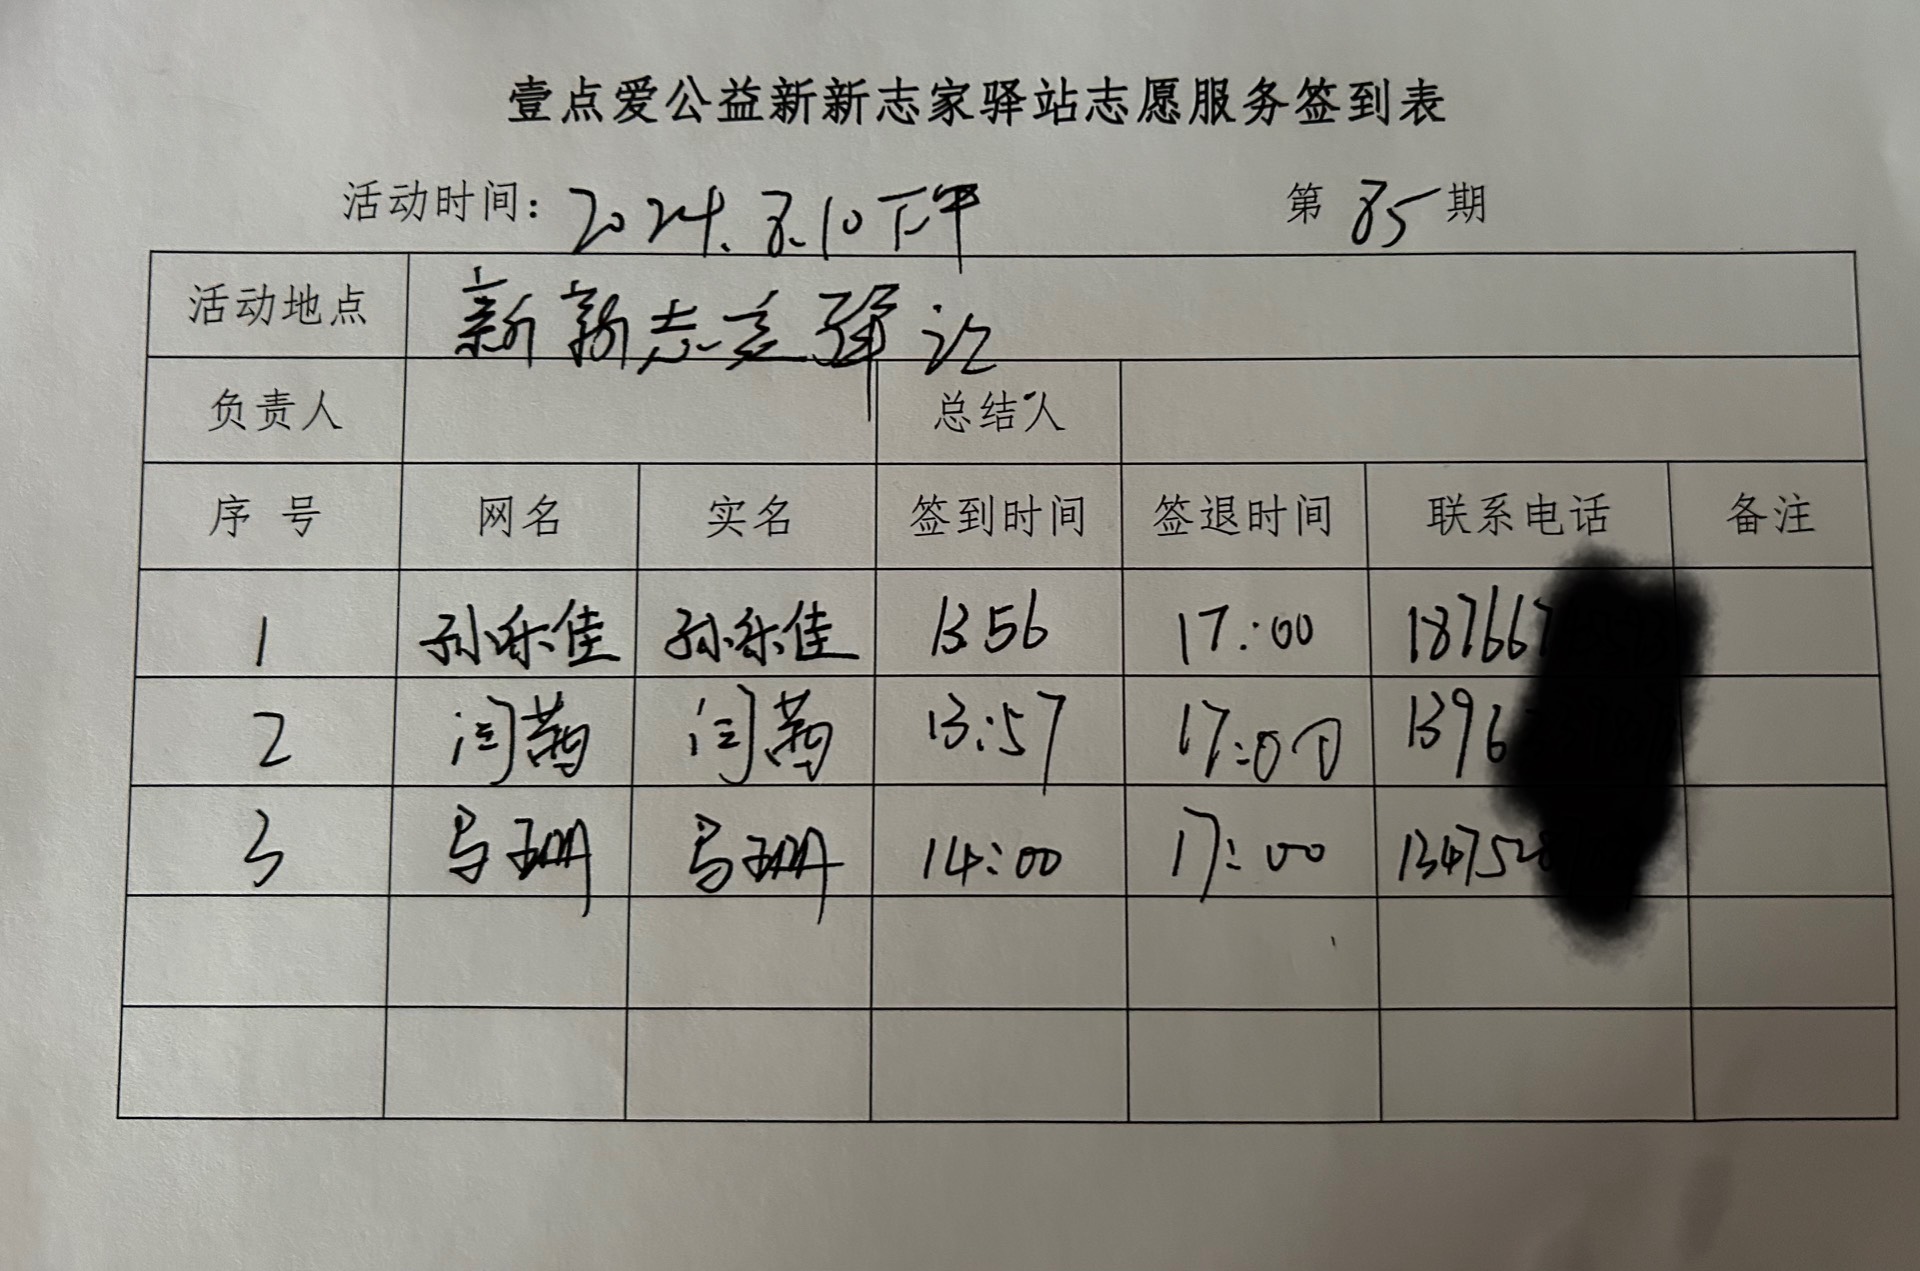 壹点爱公益新新志家驿站志愿服务签到表
活动时间: 2024.8.10下午 第 85 期
活动地点 新新志家驿站
负责人 总结人
序号 网名 实名 签到时间 签退时间 联系电话 备注
1 孙乐佳 孙乐佳 13 56 17:00 18766
2 闫茜 闫茜 13:57 17:00 1396
3 马珊 马珊 14:00 17:00 1347528